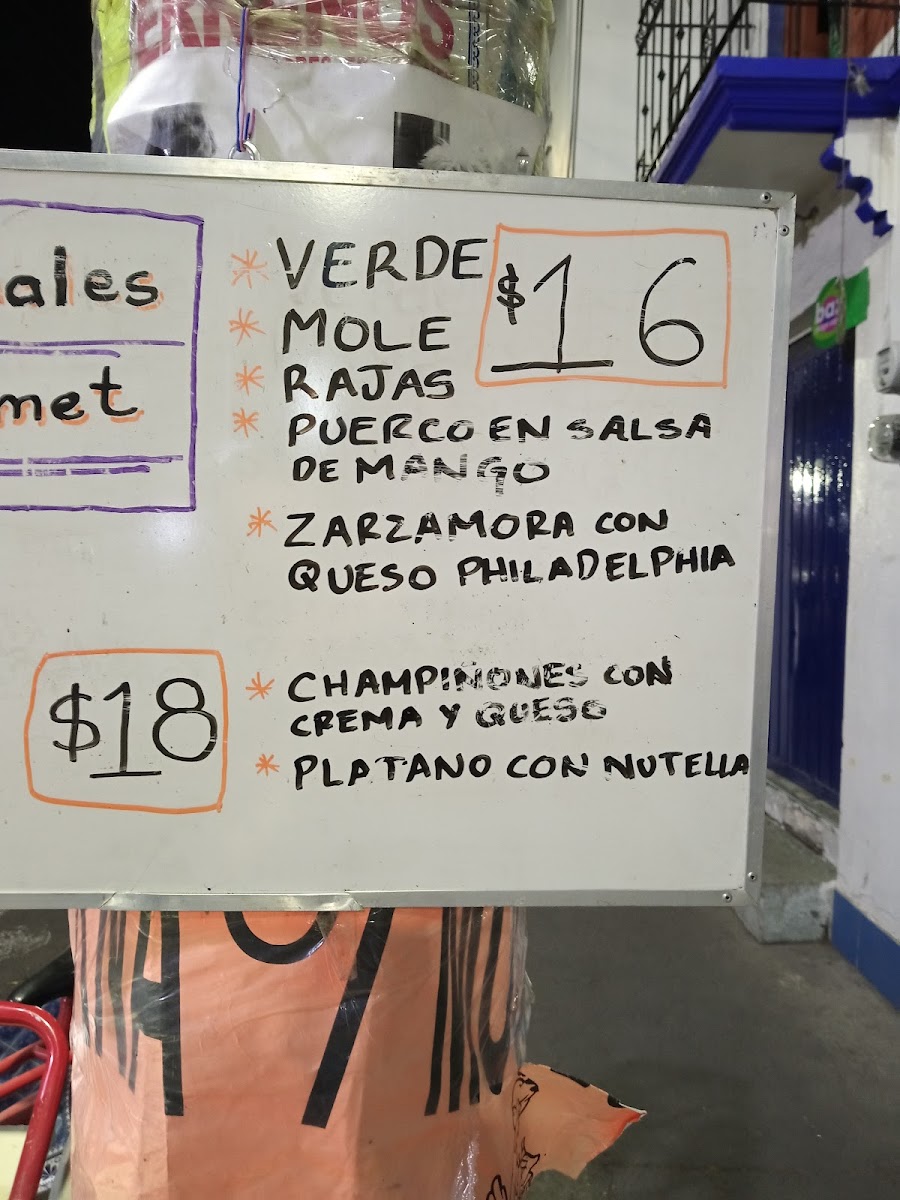 ales
met
* VERDE
$16
* MOLE
* RAJAS
* PUERCO EN SALSA
DE MANGO
* ZARZAMORA CON
QUESO PHILADELPHIA
$18
* CHAMPIÑONES CON
CREMA Y QUESO
* PLATANO CON NUTELLA